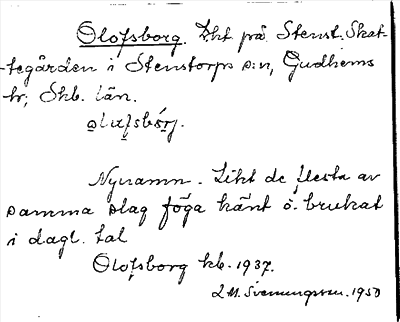 Olofsborg. Lht på Stenst. Skat-
tegården i Stenstorps s:n, Gudhems
hr; Skb. län.
olufsbórj.
Nynamn. Likt de flesta av
samma slag föga känt o. brukat
i dagl. tal
Olofsborg kb. 1937.
L M. Svenungsson. 1950